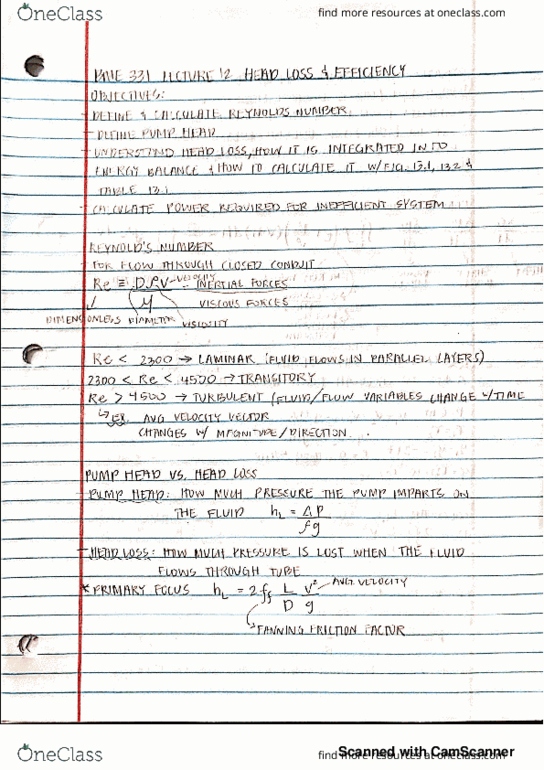 OneClass
find more resources at oneclass.com
331 LECTURE 12 HEAD LOSS & EFFICIENCY
OBJECTIVES:
- DEFINE & CALCULATE REYNOLDS NUMBER
- DEFINE PUMP HEAD
- UNDERSTAND HEAD LOSS, HOW IT IS INTEGRATED IN TO
ENERGY BALANCE & HOW TO CALCULATE IT W/ FIG. 13.1, 13.2 &
TABLE 13.1
- CALCULATE POWER REQUIRED FOR INEFFICIENT SYSTEM
REYNOLD'S NUMBER
FOR FLOW THROUGH CLOSED CONDUIT
Re ≡ DρV - VELOCITY = INERTIAL FORCES
μ VISCOUS FORCES
DIMENSIONLESS DIAMETER VISCOSITY
Re < 2300 → LAMINAR (FLUID FLOWS IN PARALLEL LAYERS)
2300 < Re < 4500 → TRANSITORY
Re > 4500 → TURBULENT (FLUID/FLOW VARIABLES CHANGE W/TIME
↳ EX. AVG VELOCITY VECTOR
CHANGES W/ MAGNITUDE/DIRECTION
PUMP HEAD VS. HEAD LOSS
- PUMP HEAD: HOW MUCH PRESSURE THE PUMP IMPARTS ON
THE FLUID h_L = ΔP
ρg
- HEAD LOSS: HOW MUCH PRESSURE IS LOST WHEN THE FLUID
FLOWS THROUGH TUBE
* PRIMARY FOCUS h_L = 2 f_f L V² AVG VELOCITY
D g
↳ FANNING FRICTION FACTOR
OneClass
find more resources at oneclass.com
Scanned with CamScanner